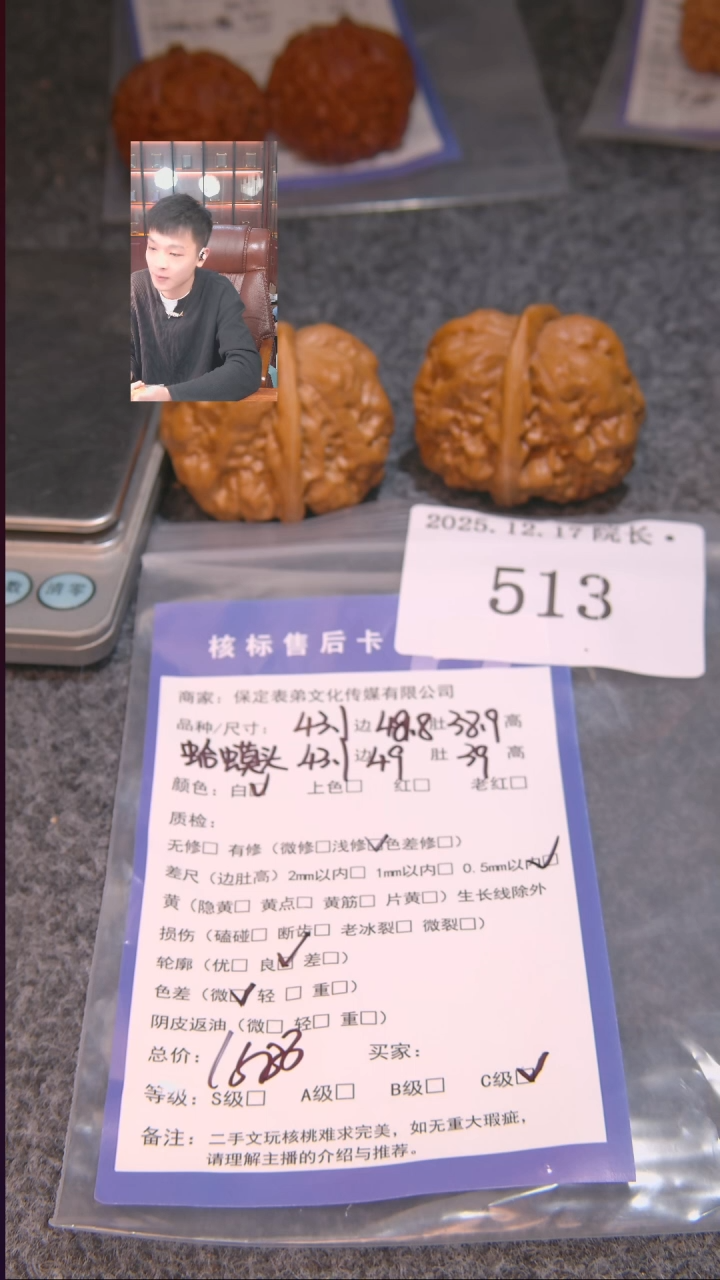 清零
2025.12.17 院长·
513
核标售后卡
商家：保定表弟文化传媒有限公司
品种/尺寸：43.1边 48.8肚 38.9高
蛤蟆头 43.1边 49肚 39高
颜色：白☑ 上色□ 红□ 老红□
质检：
无修□ 有修（微修□浅修☑色差修□）
差尺（边肚高）2mm以内□ 1mm以内□ 0.5mm以内☑
黄（隐黄□ 黄点□ 黄筋□ 片黄□）生长线除外
损伤（磕碰□ 断齿□ 老冰裂□ 微裂□）
轮廓（优□ 良☑ 差□）
色差（微☑ 轻□ 重□）
阴皮返油（微□ 轻□ 重□）
总价： 买家：
等级：S级□ A级□ B级□ C级☑
备注：二手文玩核桃难求完美，如无重大瑕疵，
请理解主播的介绍与推荐。